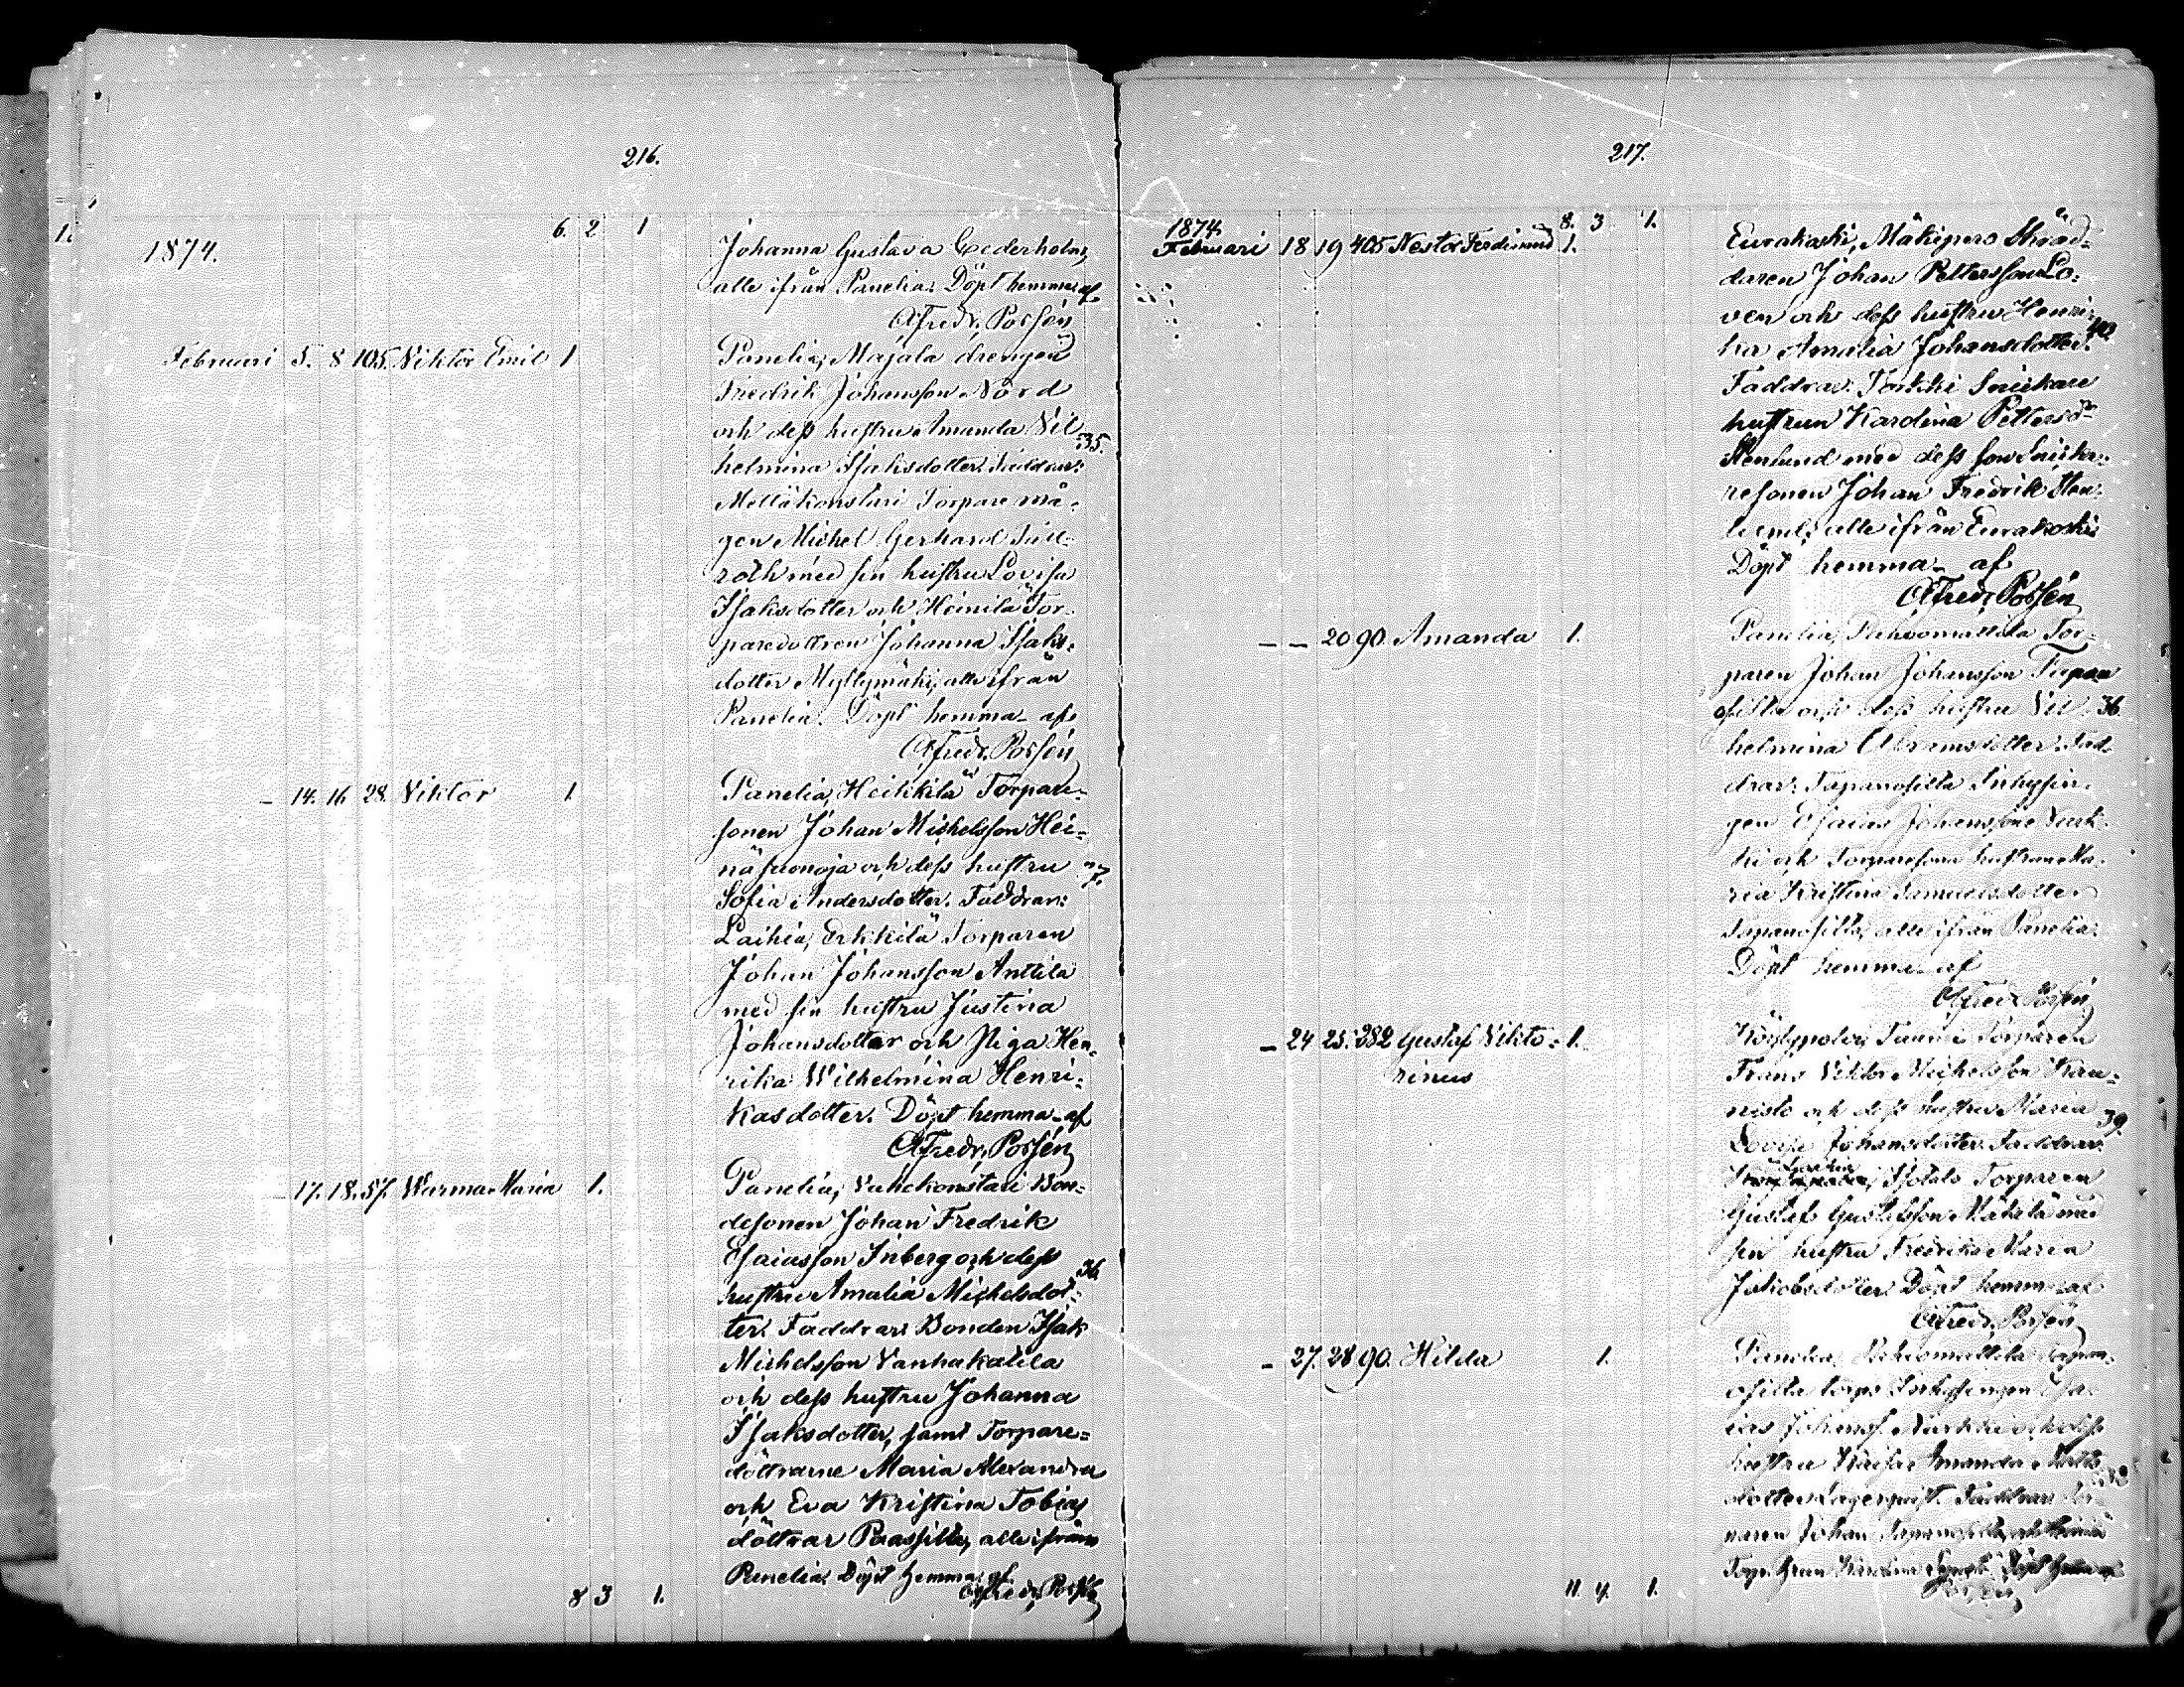 216.
6. 2 1
1874.
Johanna Gustava Cederholm,
alle ifrån Panelia. Döpt hemma af
Alfredr. Possén
Februari 5. 8 105. Viktor Emil 1
Panelia, Majala drengen
Fredrik Johansson Nord
och dess hustru Amanda Vil 35.
helmina Isaksdotter. Faddrar:
Mellä konstari Torpare må-
gen Michel Gerhard
med sin hustru Lovisa
Isaksdotter och Heinilä Tor-
paredottren Johanna Isaks-
dotter Myllymäki, alle ifrån
Panelia. Döpt hemma af
Alfredr. Possén
– 14. 16 28. Viktor 1.
Panelia, Heikkilä Torpare-
sonen Johan Michelsson Hei-
näsuonoja och dess hustru 27.
Sofia Andersdotter. Faddrar:
Laihia, Erkkilä Torparen
Johan Johansson Anttila
med sin hustru Justina
Johansdotter och Piga Hen-
rika Wilhelmina Henri-
kasdotter. Döpt hemma af
Alfredr. Possén
– 17. 18. 57. Warma Maria 1.
Panelia, Vahekonstari Bon-
desonen Johan Fredrik
Esaiasson Inberg och dess
hustru Amalia Michelsdot- 36.
ter. Faddrar: Bonden Isak
Michelsson Vanhakatila
och dess hustru Johanna
Isaksdotter, samt Torpare-
döttrarne Maria Alexandra
och Eva Kristina Tobias
döttrar Paassilta, alle ifrån
Panelia. Döpt hemma af
Alfredr. Possén
8 3 1.
217.
8. 3 1.
1874.
Februari 18 19 405 Nestor Ferdinand 1.
Eurakoski, Mäkipero Skräd-
daren Johan Pettersson Lo-
ven och dess hustru Henri-
ka Amalia Johansdotter. 40.
Faddrar: Snickare
hustrun Karolina Pettersdr
Stenlund med dess son Snicka-
resonen Johan Fredrik Sten-
lund, alle ifrån Eurakoski
Döpt hemma af
Alfredr. Possén
– – 20 90. Amanda 1.
Panelia, Tor-
paren Johan Johansson Tapan
osilta och dess hustru Vil- 36.
helmina Abramsdotter. Fad-
drar: Tapanosilta Inhysin-
gen Esaias Johansson Nurk-
ki och Torparesons hustrun Ma-
ria Kristina Samuelsdotter
Tapanosilta, alle ifrån Panelia.
Döpt hemma af
Alfredr. Possén
– 24 25. 282 Gustaf Vikto- 1.
rinus
Köylypolvi, Torparen
Frans Viktor Michelsson Kau-
nisto och dess hustru Maria 39.
Lovisa Johansdotter. Faddrar:
Torparen
Gustaf Gustafsson Mäkelä med
sin hustru Fredrika Maria
Jakobsdotter. Döpt hemma af
Alfredr. Possén
– 27. 28 90. Hilda 1.
Panelia, Tapan-
osilta torps Inhysingen Esa-
ias Johanss. Nurkki och dess
hustru Kaisa Amanda
dotter Lagerqvist. Faddrar: Tor-
paren Johan Tapanosilta
Karolina
11. 4. 1.